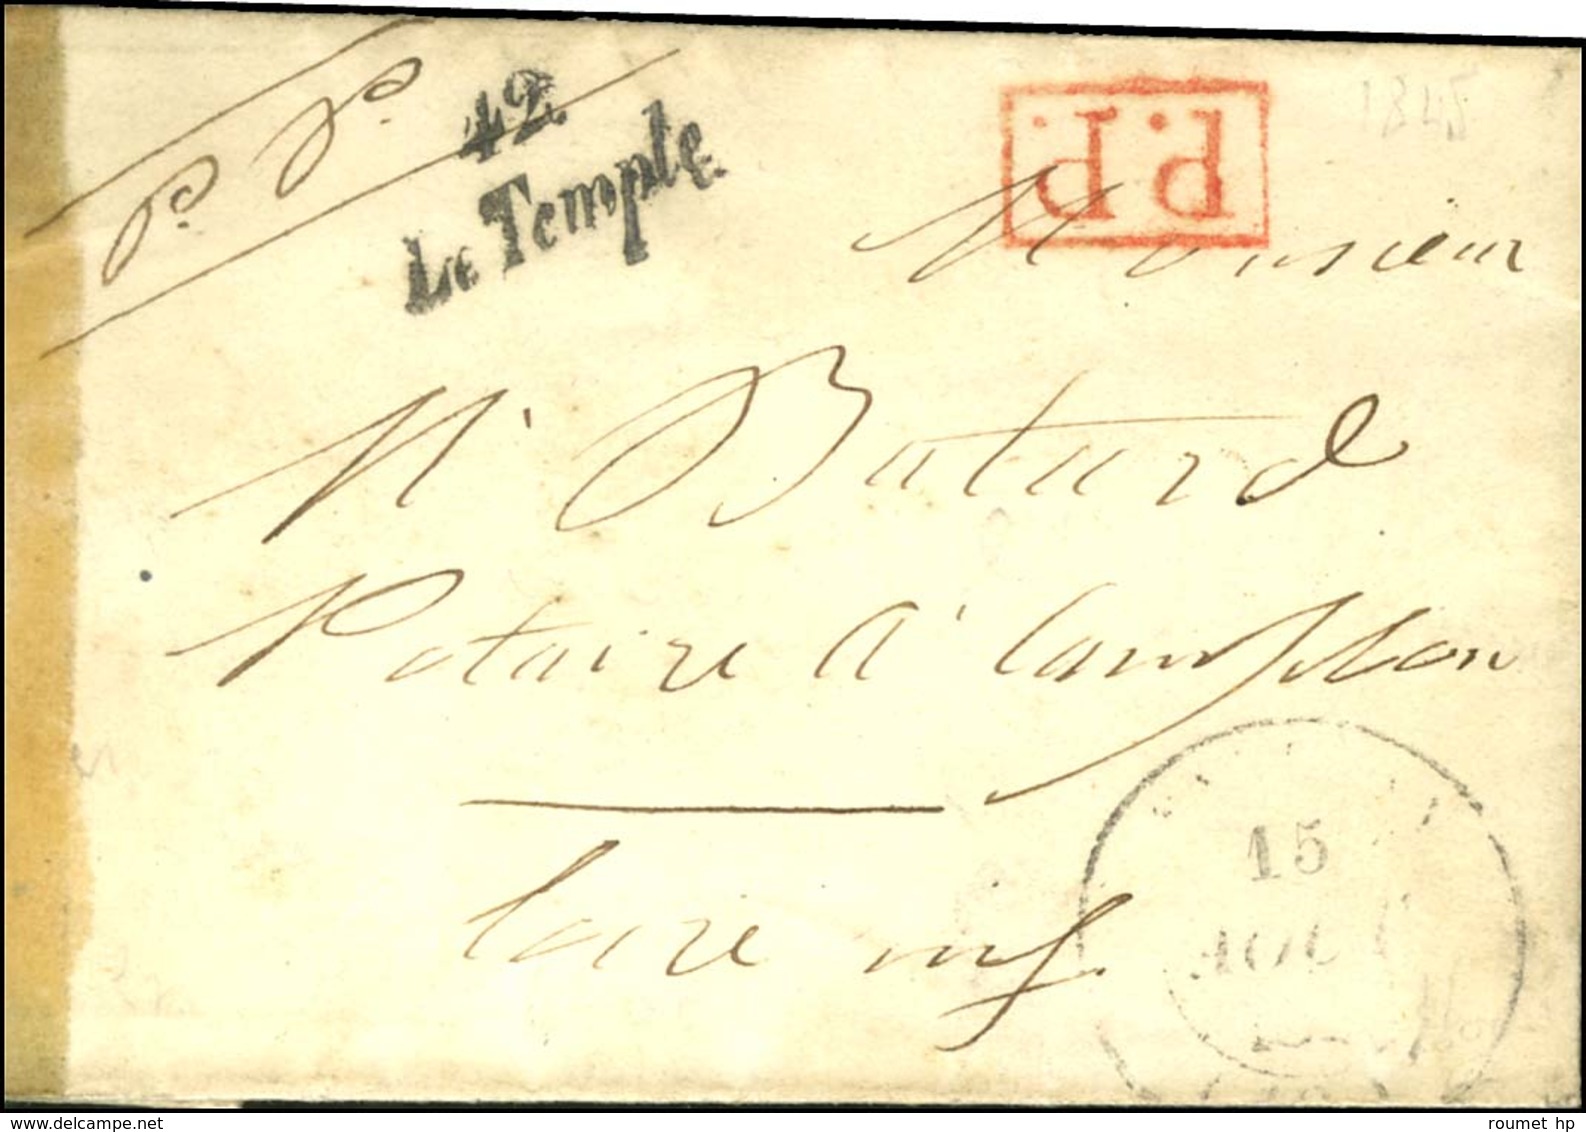 P. P.
42
Le Temple
P.P.
1845
Monsieur
Mr Batard
Notaire à
15
AOUT
Loire inf.
delcampe.net
roumet hp